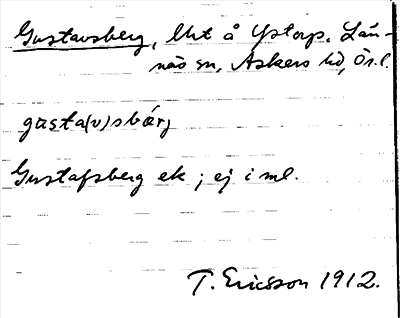 Gustavsberg, lht å Ystorp. Län-
näs sn, Askers hd, Ör. l.
gusta(v)sbærj
Gustafsberg ek; ej i ml.
T. Ericsson 1912.